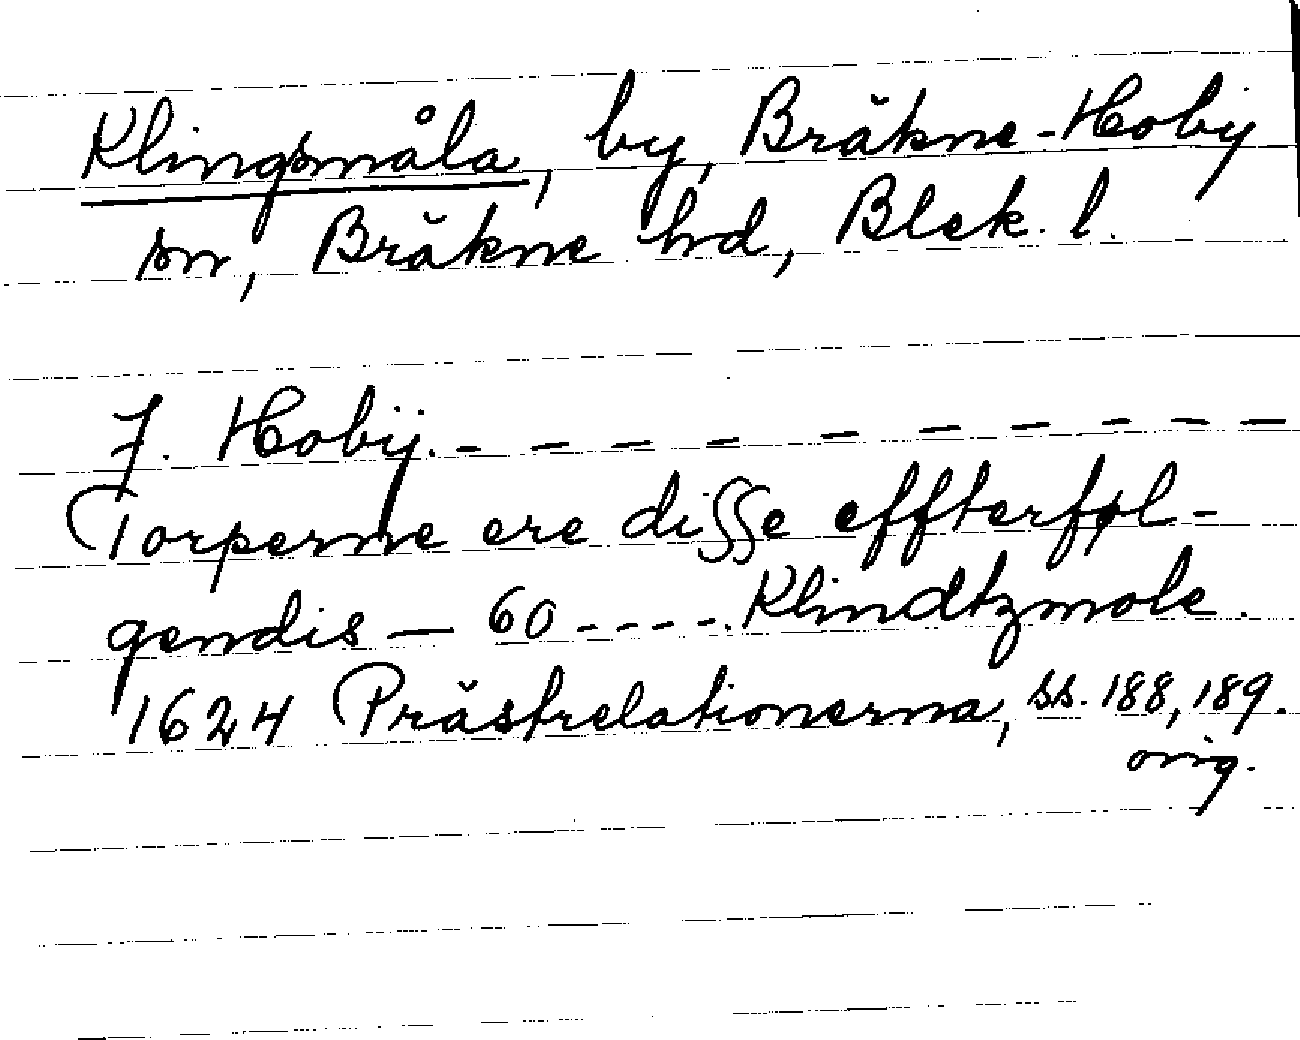 Klingsmåla, by, Bräkne-Hoby
sn, Bräkne hd, Blek. l.
J. Hobÿ. - - - - - - - - -
Torperne ere disse effterføl-
gendis — 60 - - - - . Klindtzmole.
1624 Prästrelationerna, ss. 188, 189.
orig.